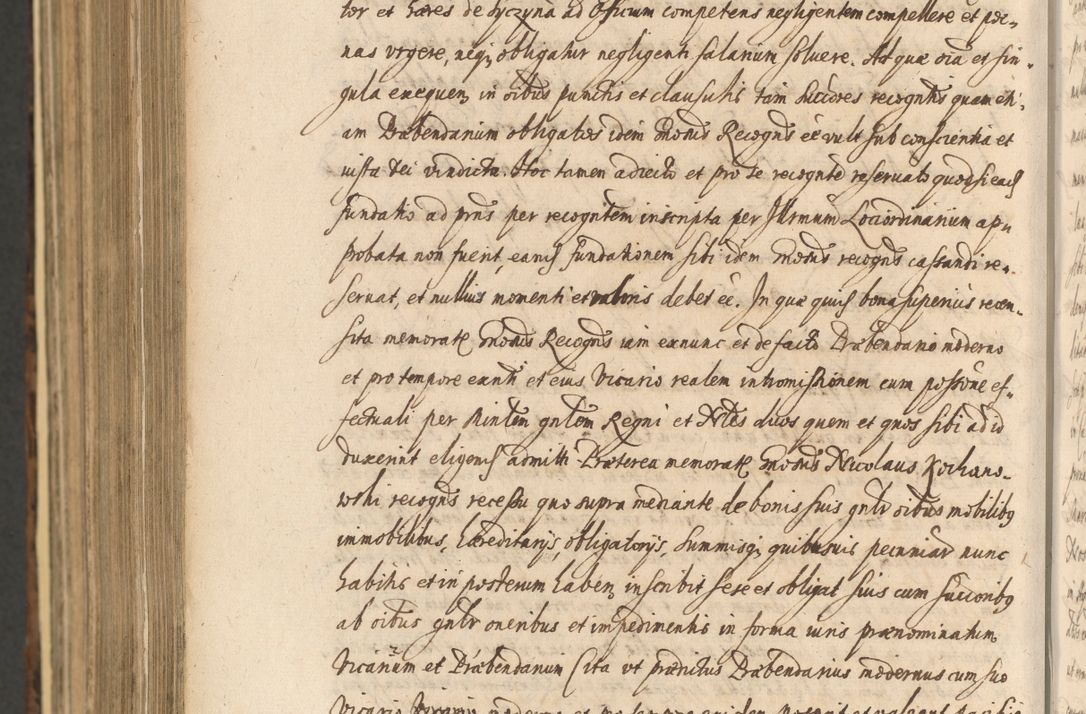 tor et haeres de Syczyna ad Officium competens negligentem compellere et poe-
nas urgere, neqz obligatur negligenti salarium soluere. Ad quae oia et sin-
gula exequen in oibus punctis et clausulis tam succores recogntis quam eti-
am Praebendarium obligatos idem Gnosus Recogns ee vult sub conscientia et
iusta Dei vindicta. Hoc tamen adiecto et pro se recognte reseruato quod si eads
fundatio ad prns per recogntem inscripta per Illrmum Loci ordinarium ap
probata non fuerit, eands fundationem sibi idem Gnosus recogns cassandi re-
seruat, et nullius momenti et valoris debet ee. In quae quids bona superius recen-
sita memorats Gnosus Recogns iam exnunc et de facto Praebendario moderno
et pro tempore exnti et eius Vicario realem intromissionem cum possone ef-
fectuali per Minlem gnlem Regni et Nbles duos quem et quos sibi ad id
duxerint eligends admitti. Praeterea memorats Gnosus Nicolaus Kochano-
wski recogns recessu quo supra mediante de bonis suis gnlr oibus mobilibq
immobilibus, haereditarys, obligatorys, summisqz quibusuis pecuniar nunc
habitis et in posterum haben, inscribit sese et obligat suis cum succoribq
ab oibus gnlr oneribus et impedimentis in forma iuris praenominatum
Vicarium et Praebendarium (ita ut praedictus Praebendarius modernus cum suo
Vicario